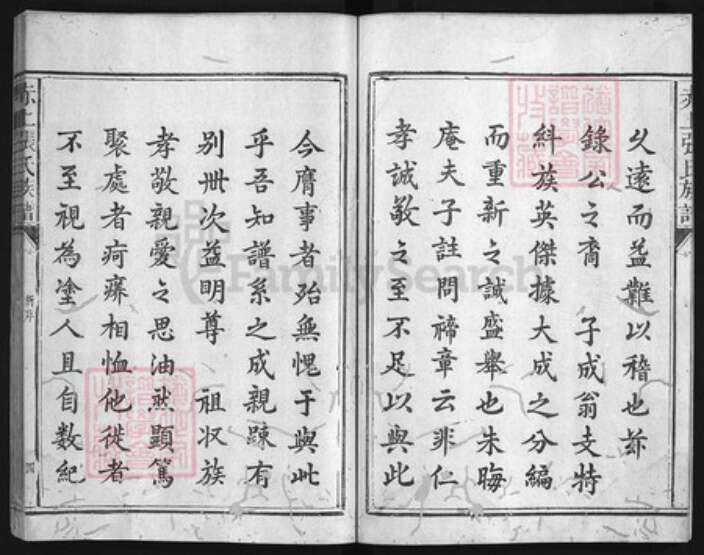 久遠而益難以稽也茲
錄公之裔　子成翁支特
糾族英傑據大成之分編
而重新之誠盛舉也朱晦
庵夫子註問禘章云非仁
孝誠敬之至不足以與此
今膺事者殆無愧于與此
乎吾知譜系之成親踈有
別卅次益明尊　祖収族
孝敬親愛之思油然顯篤
聚處者疴癢相恤他徙者
不至視為塗人且自数紀
張氏族譜
四
FamilySearch